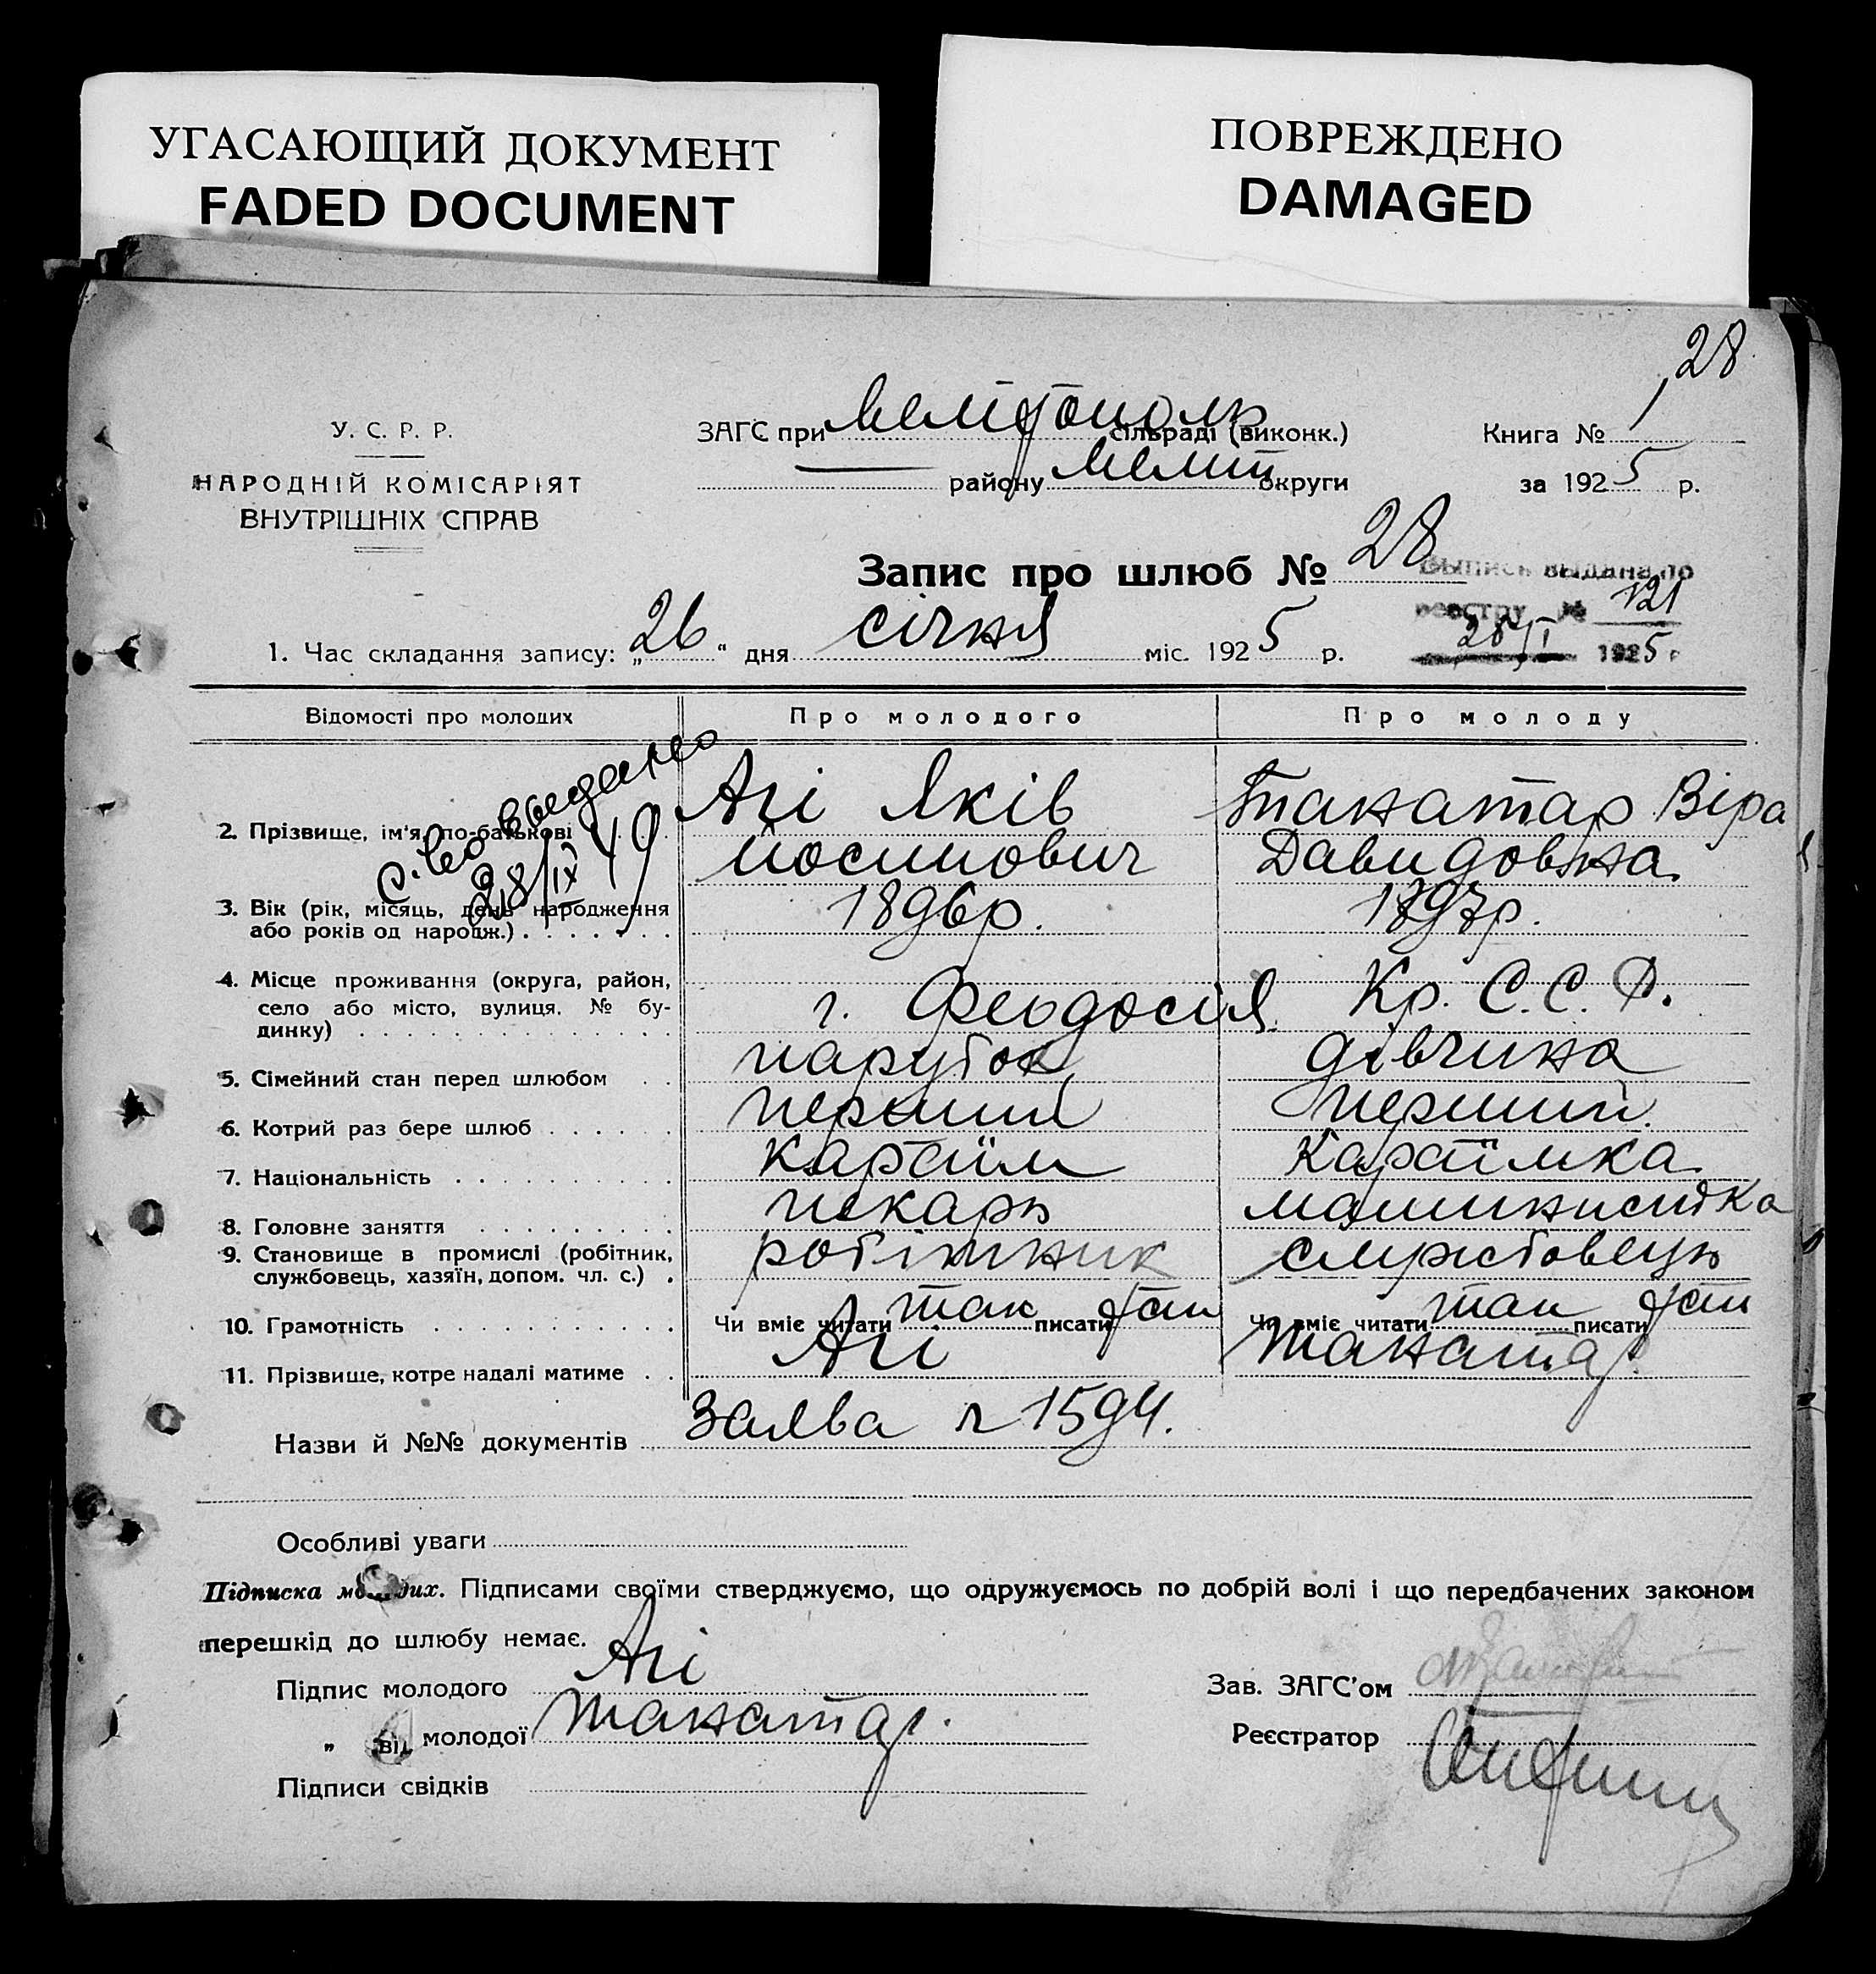 УГАСАЮЩИЙ ДОКУМЕНТ
FADED DOCUMENT
ПОВРЕЖДЕНО
DAMAGED
28
У. С. Р. Р.
НАРОДНІЙ КОМІСАРІЯТ
ВНУТРІШНІХ СПРАВ
ЗАГС при Мелітополь сільраді (виконк.)
— району Меліт округи
Книга № 1
за 1925 р.
Запис про шлюб № 28
Выпись выдана по
реестру № 121
28/I 1925 г
1. Час складання запису: „26“ дня січня міс. 1925 р.
Відомості про молодих Про молодого Про молоду
с-во выдано
28/IX 49
2. Прізвище, ім'я, по-батькові Агі Яків Танатар Віра
Йосипович Давидовна
3. Вік (рік, місяць, день народження 1896р. 1897р.
або років од народж.)
4. Місце проживання (округа, район,
село або місто, вулиця. № бу-
динку) г. Феодосія Кр. С.С.Р.
5. Сімейний стан перед шлюбом парубок дівчина
6. Котрий раз бере шлюб перший перший
7. Національність караїм караїмка
8. Головне заняття пекарь машинистка
9. Становище в промислі (робітник, робітник службовець
службовець, хазяїн, допом. чл. с.)
10. Грамотність Чи вміє читати так писати так Чи вміє читати так писати так
11. Прізвище, котре надалі матиме Агі Танатар
Назви й №№ документів Заява № 1594.
Особливі уваги
Підписка молодих. Підписами своїми стверджуємо, що одружуємось по добрій волі і що передбачених законом
перешкід до шлюбу немає.
Підпис молодого Агі
„ молодої Танатар.
Підписи свідків
Зав. ЗАГС'ом
Реєстратор